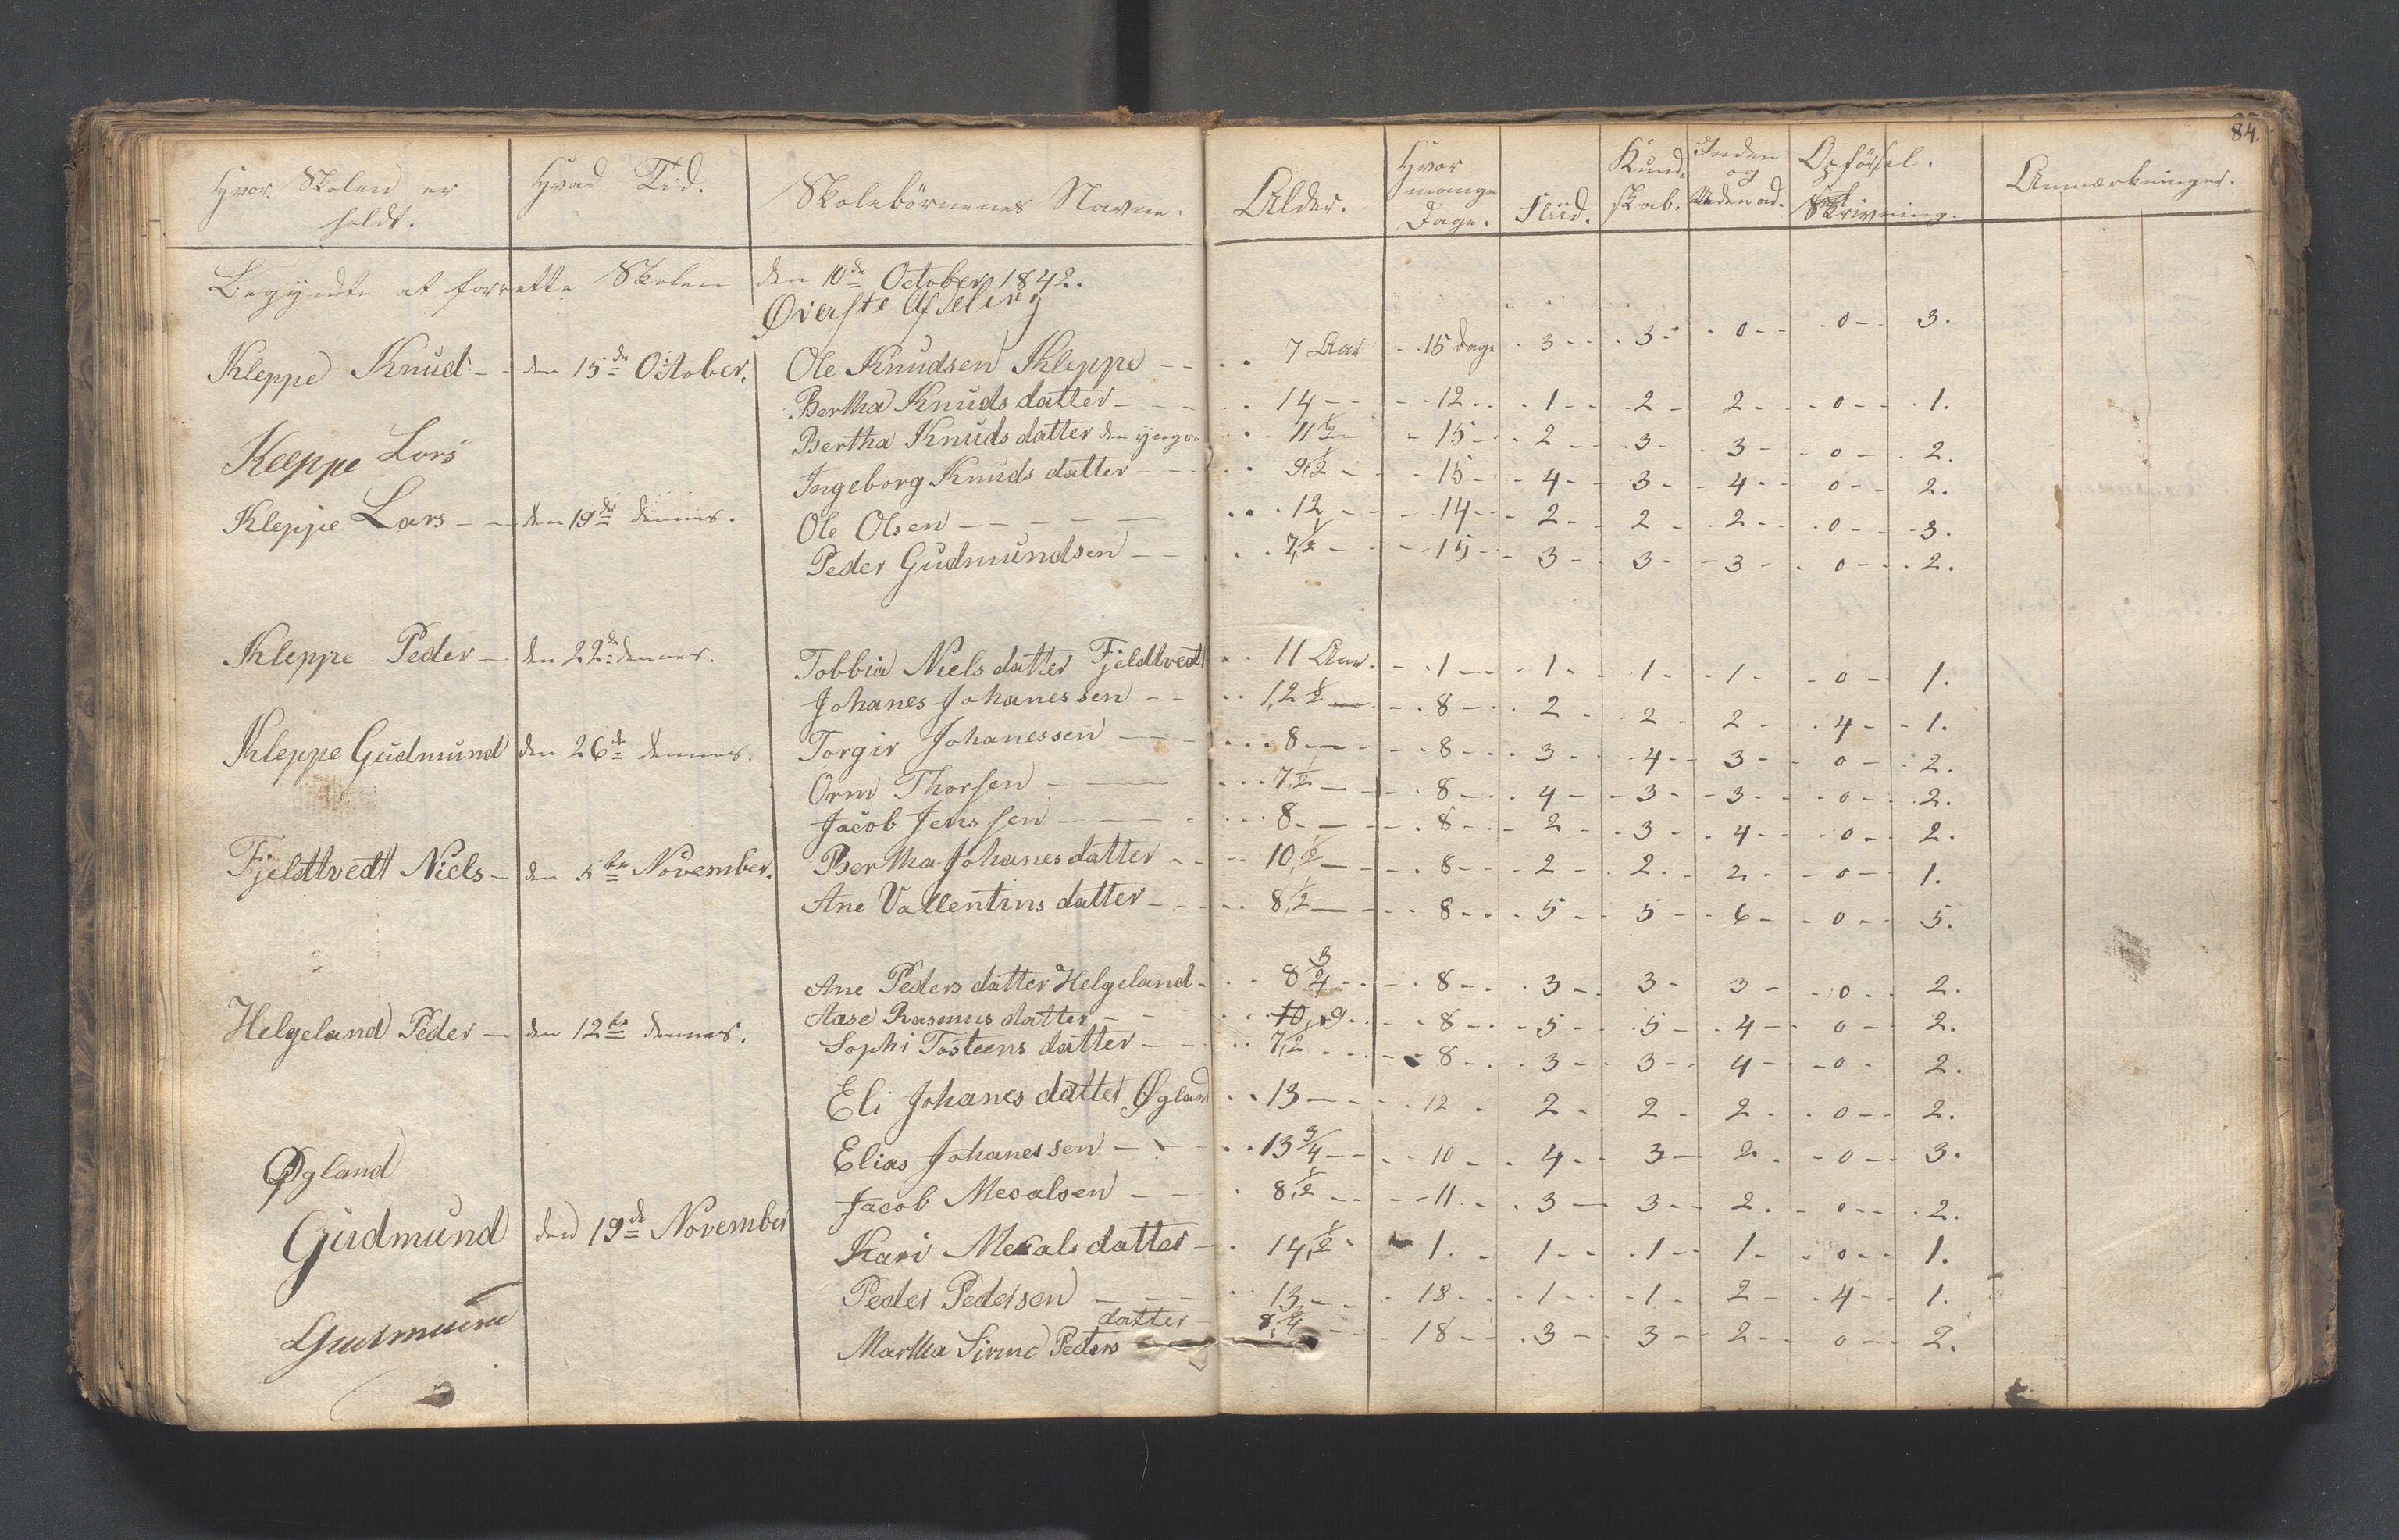 84.
Hvor Skolen er holdt. Hvad Tid. Skolebörnenes Navne. Alder. Hvor mange Dage. Fliid. Kundskab. Inden og Udenad. Opførsel. Skrivning. Anmærkninger.
Begyndte at forrette Skolen den 10de October 1842.
Øverste Afdeling
Kleppe Knud - den 15de October. Ole Knudsen Kleppe - - 7 Aar - 15 Dage 3 - 3 - 0 - 0 - 3.
Bertha Knuds datter - - 14 - 12 - 1 - 2 - 2 - 0 - 1.
Bertha Knuds datter den yngre 11 1/2 - 15 - 2 - 3 - 3 - 0 - 2.
Kleppe Lars
Ingeborg Knuds datter - - 9 1/2 - 15 - 4 - 3 - 4 - 0 - 2.
Kleppe Lars - den 19de dennes. Ole Olsen - - 12 - 14 - 2 - 2 - 2 - 0 - 3.
Peder Gudmundsen - - 7 1/2 - 15 - 3 - 3 - 3 - 0 - 2.
Kleppe Peder - den 22de dennes. Tobbia Niels datter Fjeldtvedt 11 Aar. - 1 - 1 - 1 - 1 - 0 - 1.
Johanes Johanessen - - 12 1/2 - 8 - 2 - 2 - 2 - 4 - 1.
Kleppe Gudmund den 26de dennes. Torgir Johanessen - - 8 - 8 - 3 - 4 - 3 - 0 - 2.
Orm Thorsen - - 7 1/2 - 8 - 4 - 3 - 3 - 0 - 2.
Jacob Jenssen - - 8 - 8 - 2 - 3 - 4 - 0 - 2.
Fjeldtvedt Niels - den 5te November. Bertha Johanes datter - - 10 1/2 - 8 - 2 - 2 - 2 - 0 - 1.
Ane Vallentins datter - - 8 1/2 - 8 - 5 - 5 - 6 - 0 - 5.
Ane Peders datter Helgeland - 8 3/4 - 8 - 3 - 3 - 3 - 0 - 2.
Helgeland Peder - den 12te dennes. Aase Rasmus datter - - 10, 9 - 8 - 5 - 5 - 4 - 0 - 2.
Sophi Tosteens datter - - 7 1/2 - 8 - 3 - 3 - 4 - 0 - 2.
Eli Johanes datter Øgland 13 - 12 - 2 - 2 - 2 - 0 - 2.
Øgland
Elias Johanessen - - 13 3/4 - 10 - 4 - 3 - 2 - 0 - 3.
Jacob Mecalsen - - 8 1/2 - 11 - 3 - 3 - 2 - 0 - 2.
Gudmund den 19de November
Kari Mekals datter - 14 1/2 - 1 - 1 - 1 - 1 - 0 - 1.
Peder Pedersen - - 13 - 18 - 1 - 1 - 2 - 4 - 1.
Gudmund
datter
Martha Sirene Peders 8 3/4 - 18 - 3 - 3 - 2 - 0 - 2.